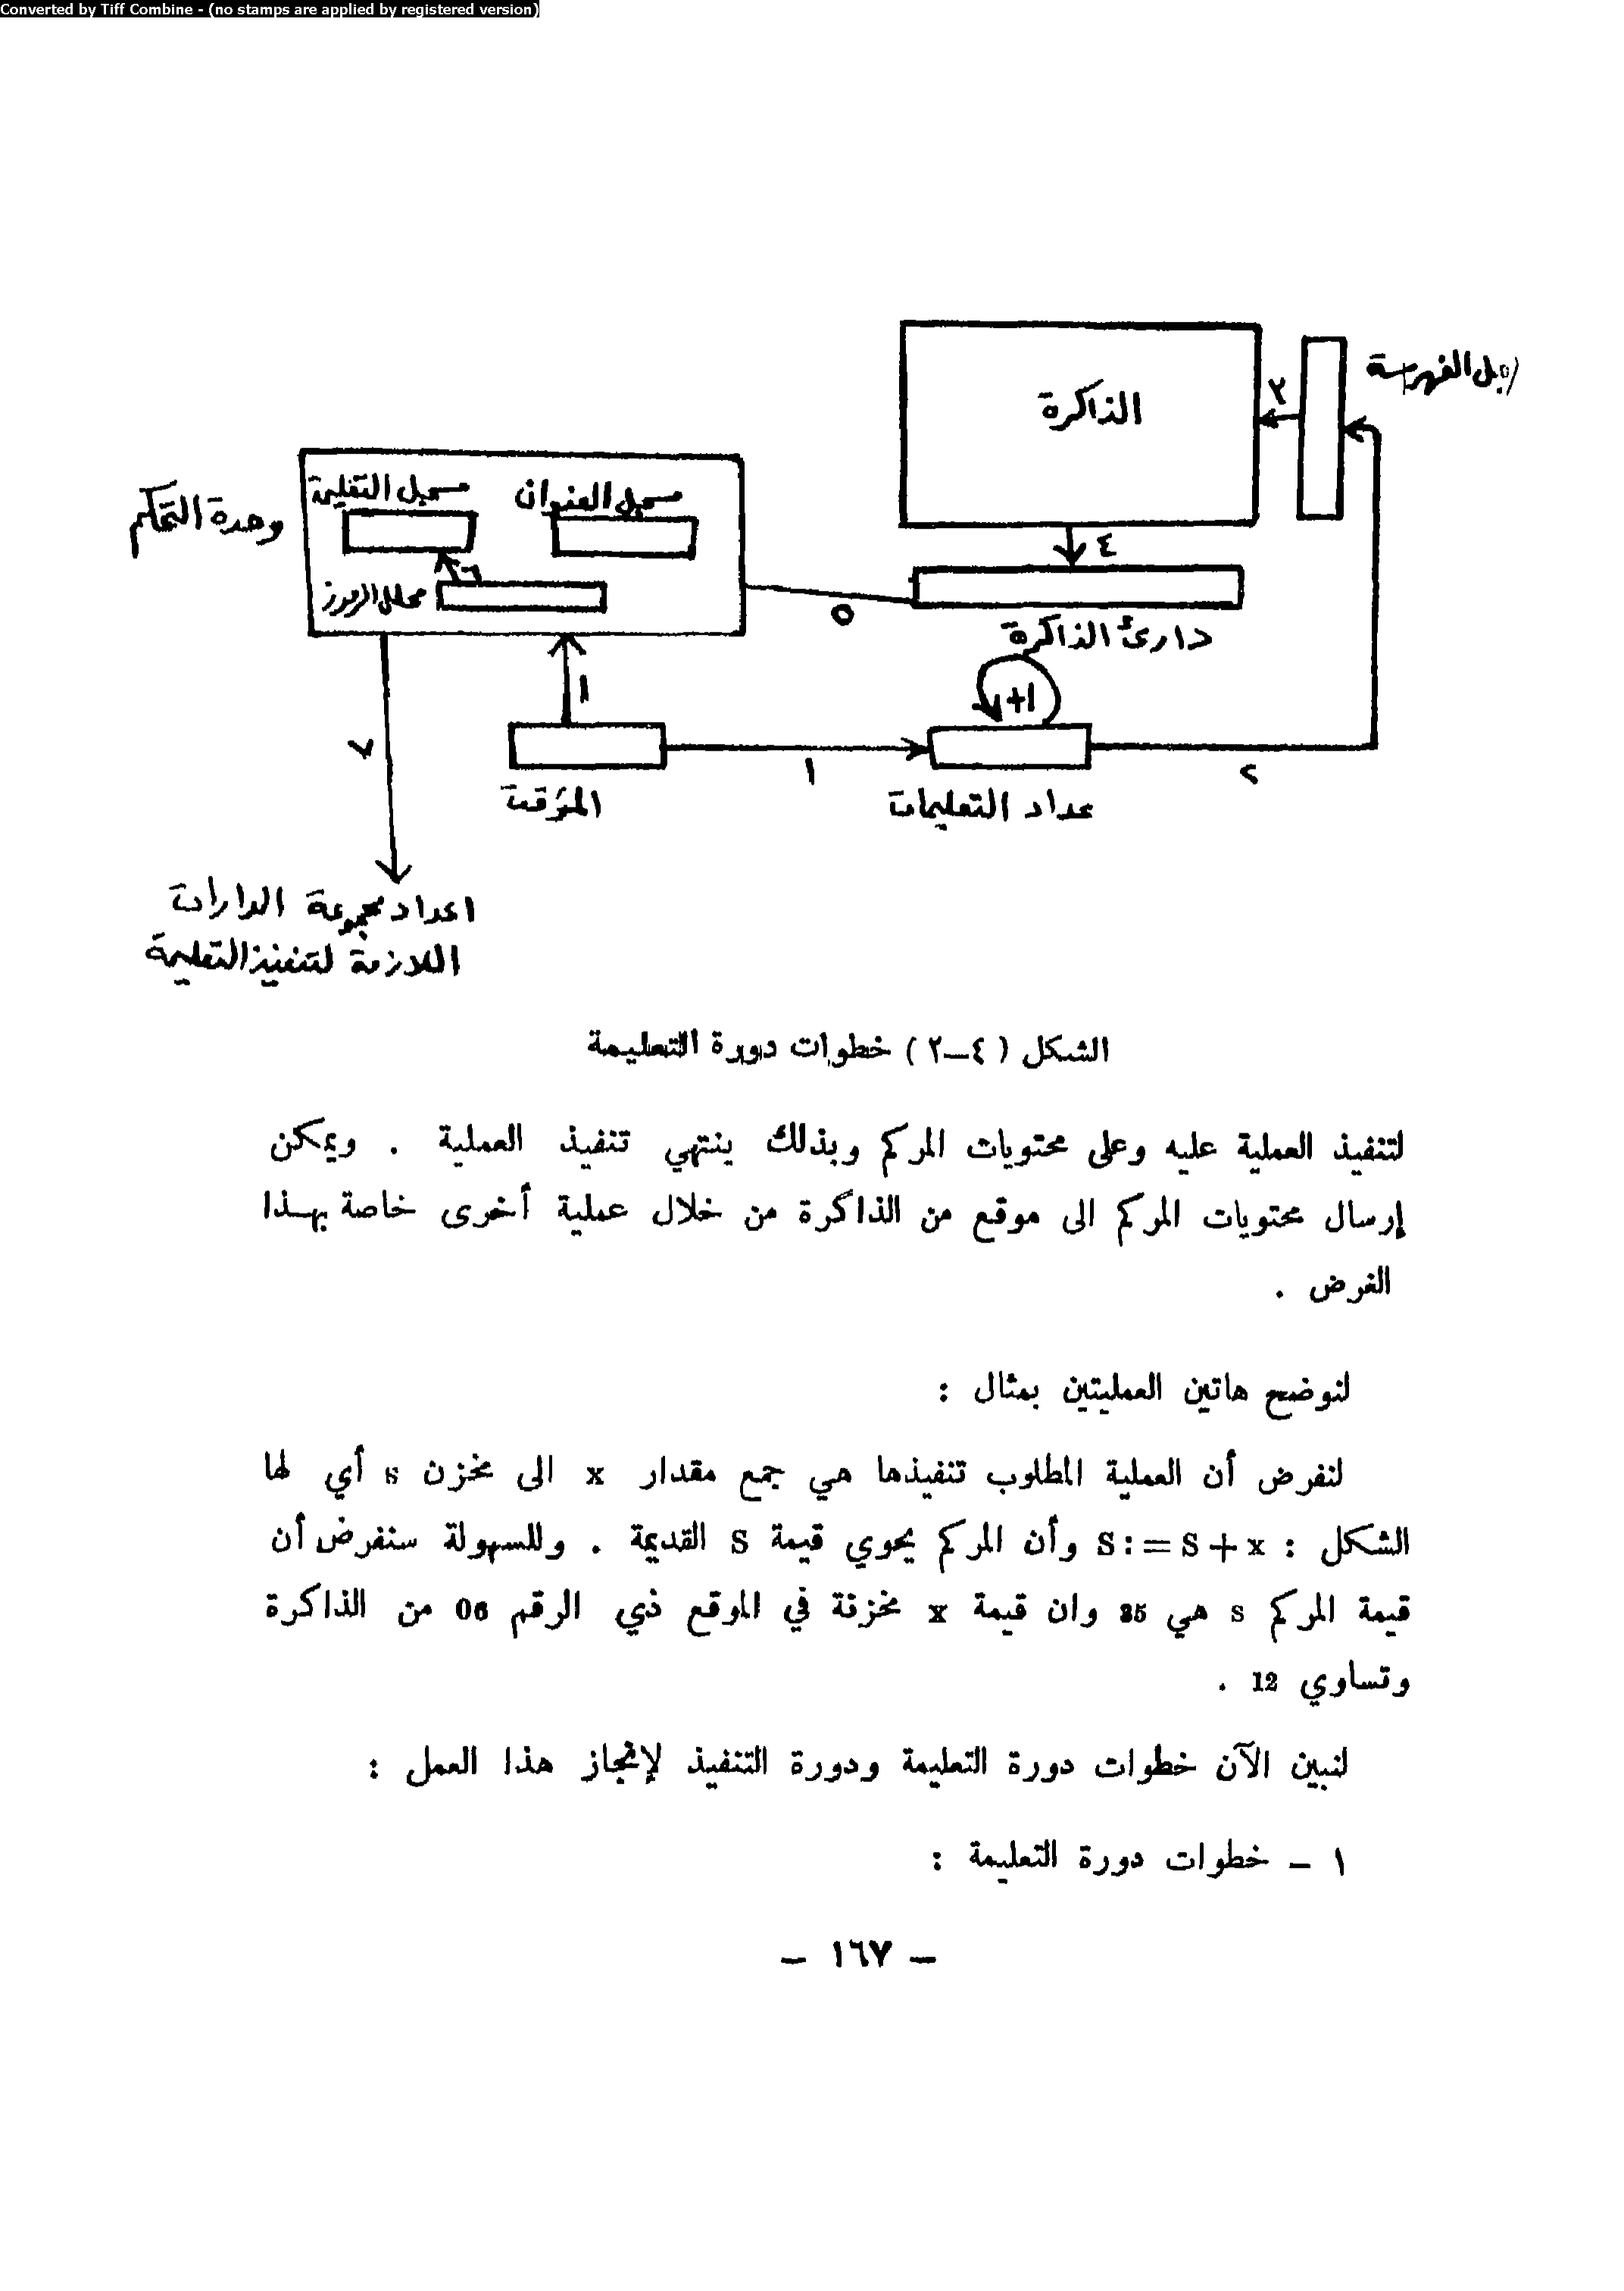 Converted by Tiff Combine - (no stamps are applied by registered version)
الفهرسة
الذاكرة
٣
٤
دارئ الذاكرة
مسجل العنوان
مسجل التعليمة
محلل الرموز
٦
وحدة التحكم
٥
+1
١
١
٢
٧
عداد التعليمات
المؤقتة
اعداد مجموعة الدارات
اللازمة لتنفيذ التعليمة
الشكل ( ٤–٢ ) خطوات دورة التعليمة
لتنفيذ العملية عليه وعلى محتويات المركم وبذلك ينتهي تنفيذ العملية . ويمكن
إرسال محتويات المركم الى موقع من الذاكرة من خلال عملية أخرى خاصة بهذا
الغرض .
لنوضح هاتين العمليتين بمثال :
لنفرض أن العملية المطلوب تنفيذها هي جمع مقدار x الى مخزن s أي لها
الشكل : S := S + x وأن المركم يحوي قيمة S القديمة . وللسهولة سنفرض أن
قيمة المركم s هي 35 وان قيمة x مخزنة في الموقع ذي الرقم 06 من الذاكرة
وتساوي 12 .
لنبين الآن خطوات دورة التعليمة ودورة التنفيذ لإنجاز هذا العمل :
١ – خطوات دورة التعليمة :
– ١٦٧ –